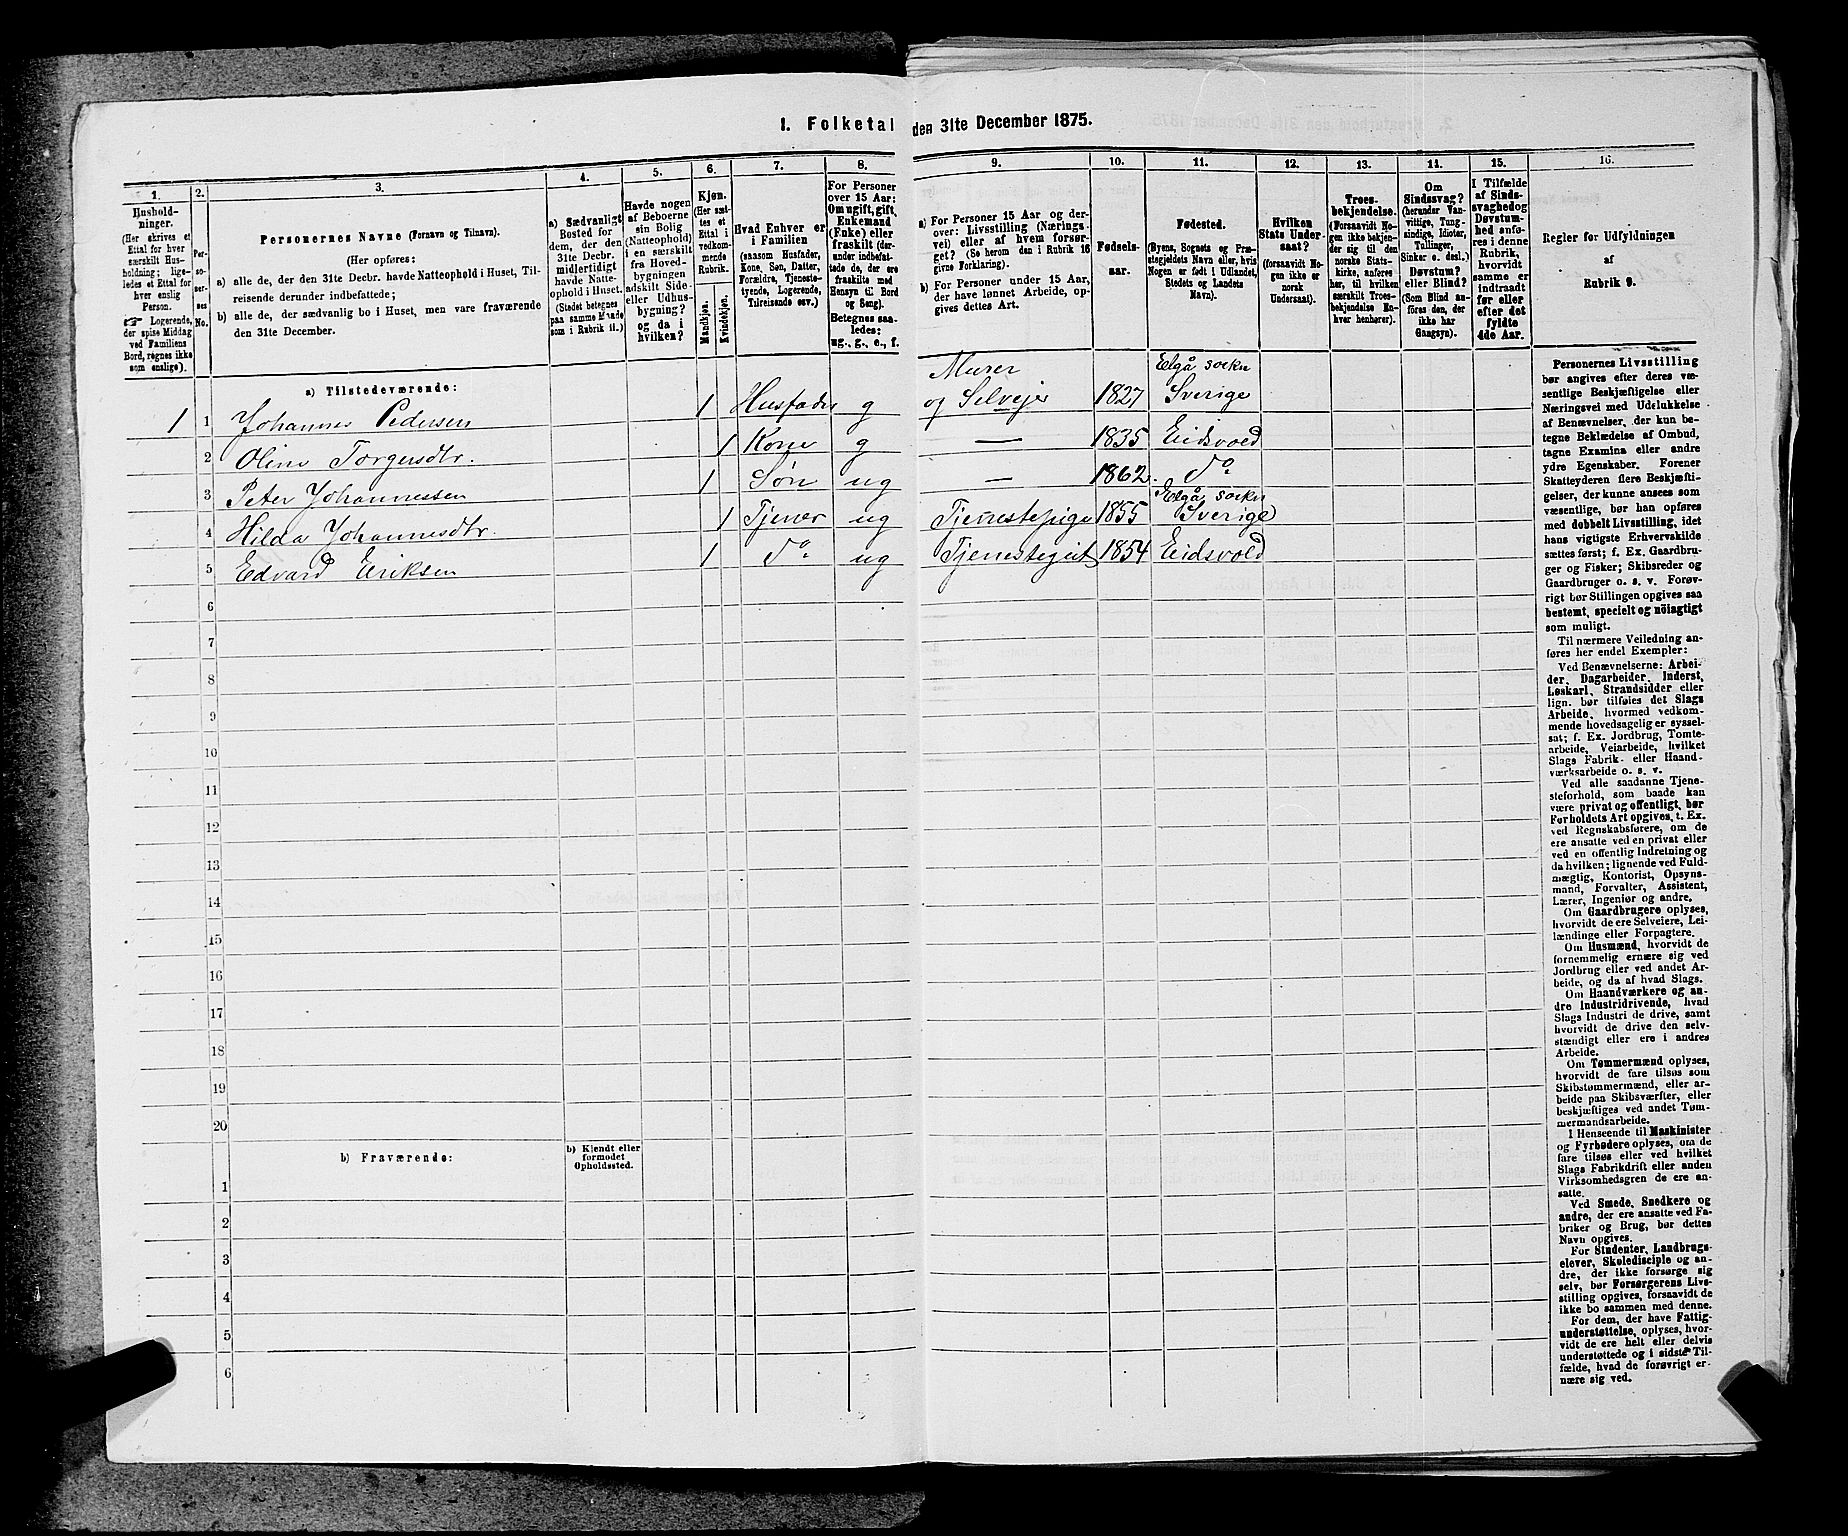 1. Folketal den 31te December 1875.
1. 2. 3. 4. 5. 6. 7. 8. 9. 10. 11. 12. 13. 14. 15. 16.
Hushold-
ninger.
(Her skrives et
Ettal for hver
særskilt Hus-
holdning; lige-
ledes et Ettal for
hver enslig
Person.
☞ Logerende,
der spise Middag
ved Familiens
Bord, regnes ikke
som enslige).
Per-
so-
ner-
nes
No.
Personernes Navne (Fornavn og Tilnavn).
(Her opføres:
a) alle de, der den 31te Decbr. havde Natteophold i Huset, Til-
reisende derunder indbefattede;
b) alle de, der sædvanlig bo i Huset, men vare fraværende
den 31te December.
a) Sædvanligt
Bosted for
dem, der den
31te Decbr.
midlertidigt
havde Natte-
ophold i Huset.
(Stedet betegnes
paa samme Maade
som i Rubrik 11.)
Havde nogen
af Beboerne
sin Bolig
(Natteophold)
i en særskilt
fra Hoved-
bygningen
adskilt Side-
eller Udhus-
bygning?
og da i
hvilken?
Kjøn.
(Her sæt-
tes et
Ettal i
vedkom-
mende
Rubrik.
Mandkjøn.
Kvindekjøn.
Hvad Enhver er
i Familien
(saasom Husfader,
Kone, Søn, Datter,
Forældre, Tjeneste-
tyende, Logerende,
Tilreisende osv.)
For Personer
over 15 Aar:
Om ugift, gift,
Enkemand
(Enke) eller
fraskilt (der-
under indbefat-
tede de, der ere
fraskilte med
Hensyn til Bord
og Seng).
Betegnes saa-
ledes:
ug., g., e., f.
a) For Personer 15 Aar og der-
over: Livsstilling (Nærings-
vei) eller af hvem forsør-
get? (Se herom den i Rubrik 16
givne Forklaring).
b) For Personer under 15 Aar,
der have lønnet Arbeide, op-
gives dettes Art.
Fødsels-
aar.
Fødested.
(Byens, Sognets og Præ-
stegjeldets Navn eller, hvis
Nogen er født i Udlandet,
Stedets og Landets
Navn).
Hvilken
Stats Under-
saat?
(forsaavidt No-
gen ikke er
norsk
Undersaat).
Troes-
bekjendelse.
(Forsaavidt No-
gen ikke bekjen-
der sig til den
norske Stats-
kirke, anføres
her, til hvilken
særskilt Troes-
bekjendelse En-
hver henhører).
Om
Sindssvag?
(herunder Van-
vittige, Tung-
sindige, Idioter,
Tullinger,
Sinker o. desl.)
Døvstum?
eller Blind?
(Som Blind an-
føres den, der
ikke har
Gangsyn).
I Tilfælde
af Sinds-
svaghed og
Døvstum-
hed anfø-
res i denne
Rubrik,
hvorvidt
samme er
indtraadt
før eller
efter det
fyldte
4de Aar.
Regler for Udfyldningen
af
Rubrik 9.
a) Tilstedeværende:
1 1 Johannes Pedersen 1 Husfader g Murer og Selvejer 1827 Elgå sockn Sverige
2 Oline Torgersdtr. 1 Kone g — 1835 Eidsvold
3 Peter Johannessen 1 Søn ug — 1862. do
4 Hilda Johannesdtr. 1 Tjener ug Tjenestepige 1855 Elgå sockn Sverige
5 Edvard Eriksen 1 do ug Tjenestegut 1854 Eidsvold
6
7
8
9
10
11
12
13
14
15
16
17
18
19
20
b) Fraværende:
b) Kjendt eller
formodet
Opholdssted.
1
2
3
4
5
6
Personernes Livsstilling
bør angives efter deres væ-
sentlige Beskjæftigelse eller
Næringsvei med Udelukkelse
af Benævnelser, der kun be-
tegne Beklædelse af Ombud,
tagne Examina eller andre
ydre Egenskaber. Forener
Skatteyderen flere Beskjæfti-
gelser, der kunne ansees som
væsentlige, bør han opføres
med dobbelt Livsstilling, idet
hans vigtigste Erhvervskilde
sættes først; f. Ex. Gaardbru-
ger og Fisker; Skibsreder og
Gaardbruger o. s. v. Forøv-
rigt bør Stillingen opgives saa
bestemt, specielt og nöiagtigt
som muligt.
Til nærmere Veiledning an-
føres her endel Exempler:
Ved Benævnelserne: Arbei-
der, Dagarbeider, Inderst,
Løskarl, Strandsidder eller
lign. bør tilføies det Slags
Arbeide, hvormed vedkom-
mende hovedsagelig er syssel-
sat; f. Ex. Jordbrug, Tomte-
arbeide, Veiarbeide, hvilket
Slags Fabrik- eller Haand-
værksarbeide o. s. v.
Ved alle saadanne Tjene-
steforhold, som baade kan
være privat og offentligt, bør
Forholdets Art opgives, t. Ex.
ved Regnskabsførere, om de
ere ansatte ved en privat eller
ved en offentlig Indretning og
da hvilken; lignende ved Fuld-
mægtig, Kontorist, Opsyns-
mand, Forvalter, Assistent,
Lærer, Ingeniør og andre.
Om Gaardbrugere oplyses,
hvorvidt de ere Selveiere, Lei-
lændinge eller Forpagtere.
Om Husmænd, hvorvidt de
fornemmelig ernære sig ved
Jordbrug eller ved andet Ar-
beide, og da af hvad Slags.
Om Haandværkere og an-
dre Industridrivende, hvad
Slags Industri de drive, samt
hvorvidt de drive den selv-
stændigt eller ere i andres
Arbeide.
Om Tømmermænd oplyses,
hvorvidt de fare tilsøs som
Skibstømmermænd, eller ar-
beide paa Skibsværfter, eller
beskjæftiges ved andet Tøm-
mermandsarbeide.
I Henseende til Maskinister
og Fyrbødere oplyses, om de
fare tilsøs eller ved hvilket
Slags Fabrikdrift eller anden
Virksomhedsgren de ere an-
satte.
Ved Smede, Snedkere og
andre, der ere ansatte ved Fa-
briker og Brug, bør dettes
Navn opgives.
For Studenter, Landbrugs-
elever, Skoledisciple og an-
dre, der ikke forsørge sig
selv, bør Forsørgerens Livs-
stilling opgives, forsaavidt de
ikke bo sammen med denne.
For dem, der have Fattig-
understøttelse, oplyses, hvor-
vidt de ere helt eller delvis
understøttede og i sidste Til-
fælde, hvad de forøvrigt er-
nære sig ved.